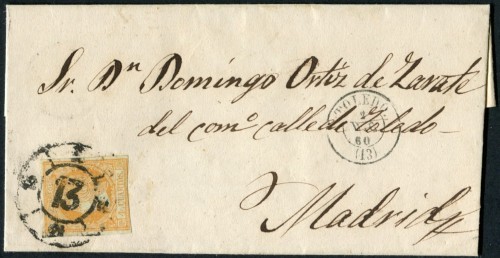 Sr. Dn Domingo Ortiz de Zarate
del como calle de Toledo
Madrid
TOLEDO
2
60
(13)
13